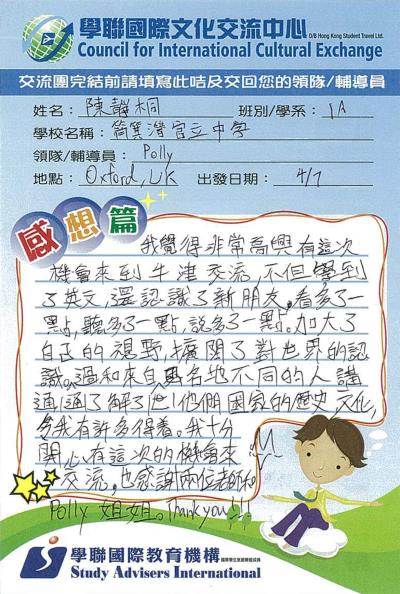 學聯國際文化交流中心 O/B Hong Kong Student Travel Ltd.
Council for International Cultural Exchange
交流團完結前請填寫此咭及交回您的領隊/輔導員
姓名: 陳靜桐 班別/學系: 1A
學校名稱: 筲箕灣官立中學
領隊/輔導員: Polly
地點: Oxford, UK 出發日期: 4/7
感想篇
我覺得非常高興有這次
機會來到牛津交流,不但學到
了英文,還認識了新朋友。看多了一
點,聽多了一點,說多了一點。加大了
自己的視野,擴闊了對世界的認
識。過和來自各地不同的人講
通了解了他們國家的歷史文化,
令我有許多得着。我十分
開心有這次的機會來
交流,也感謝兩位老師和
Polly 姐姐。Thank you!!
學聯國際教育機構
Study Advisers International